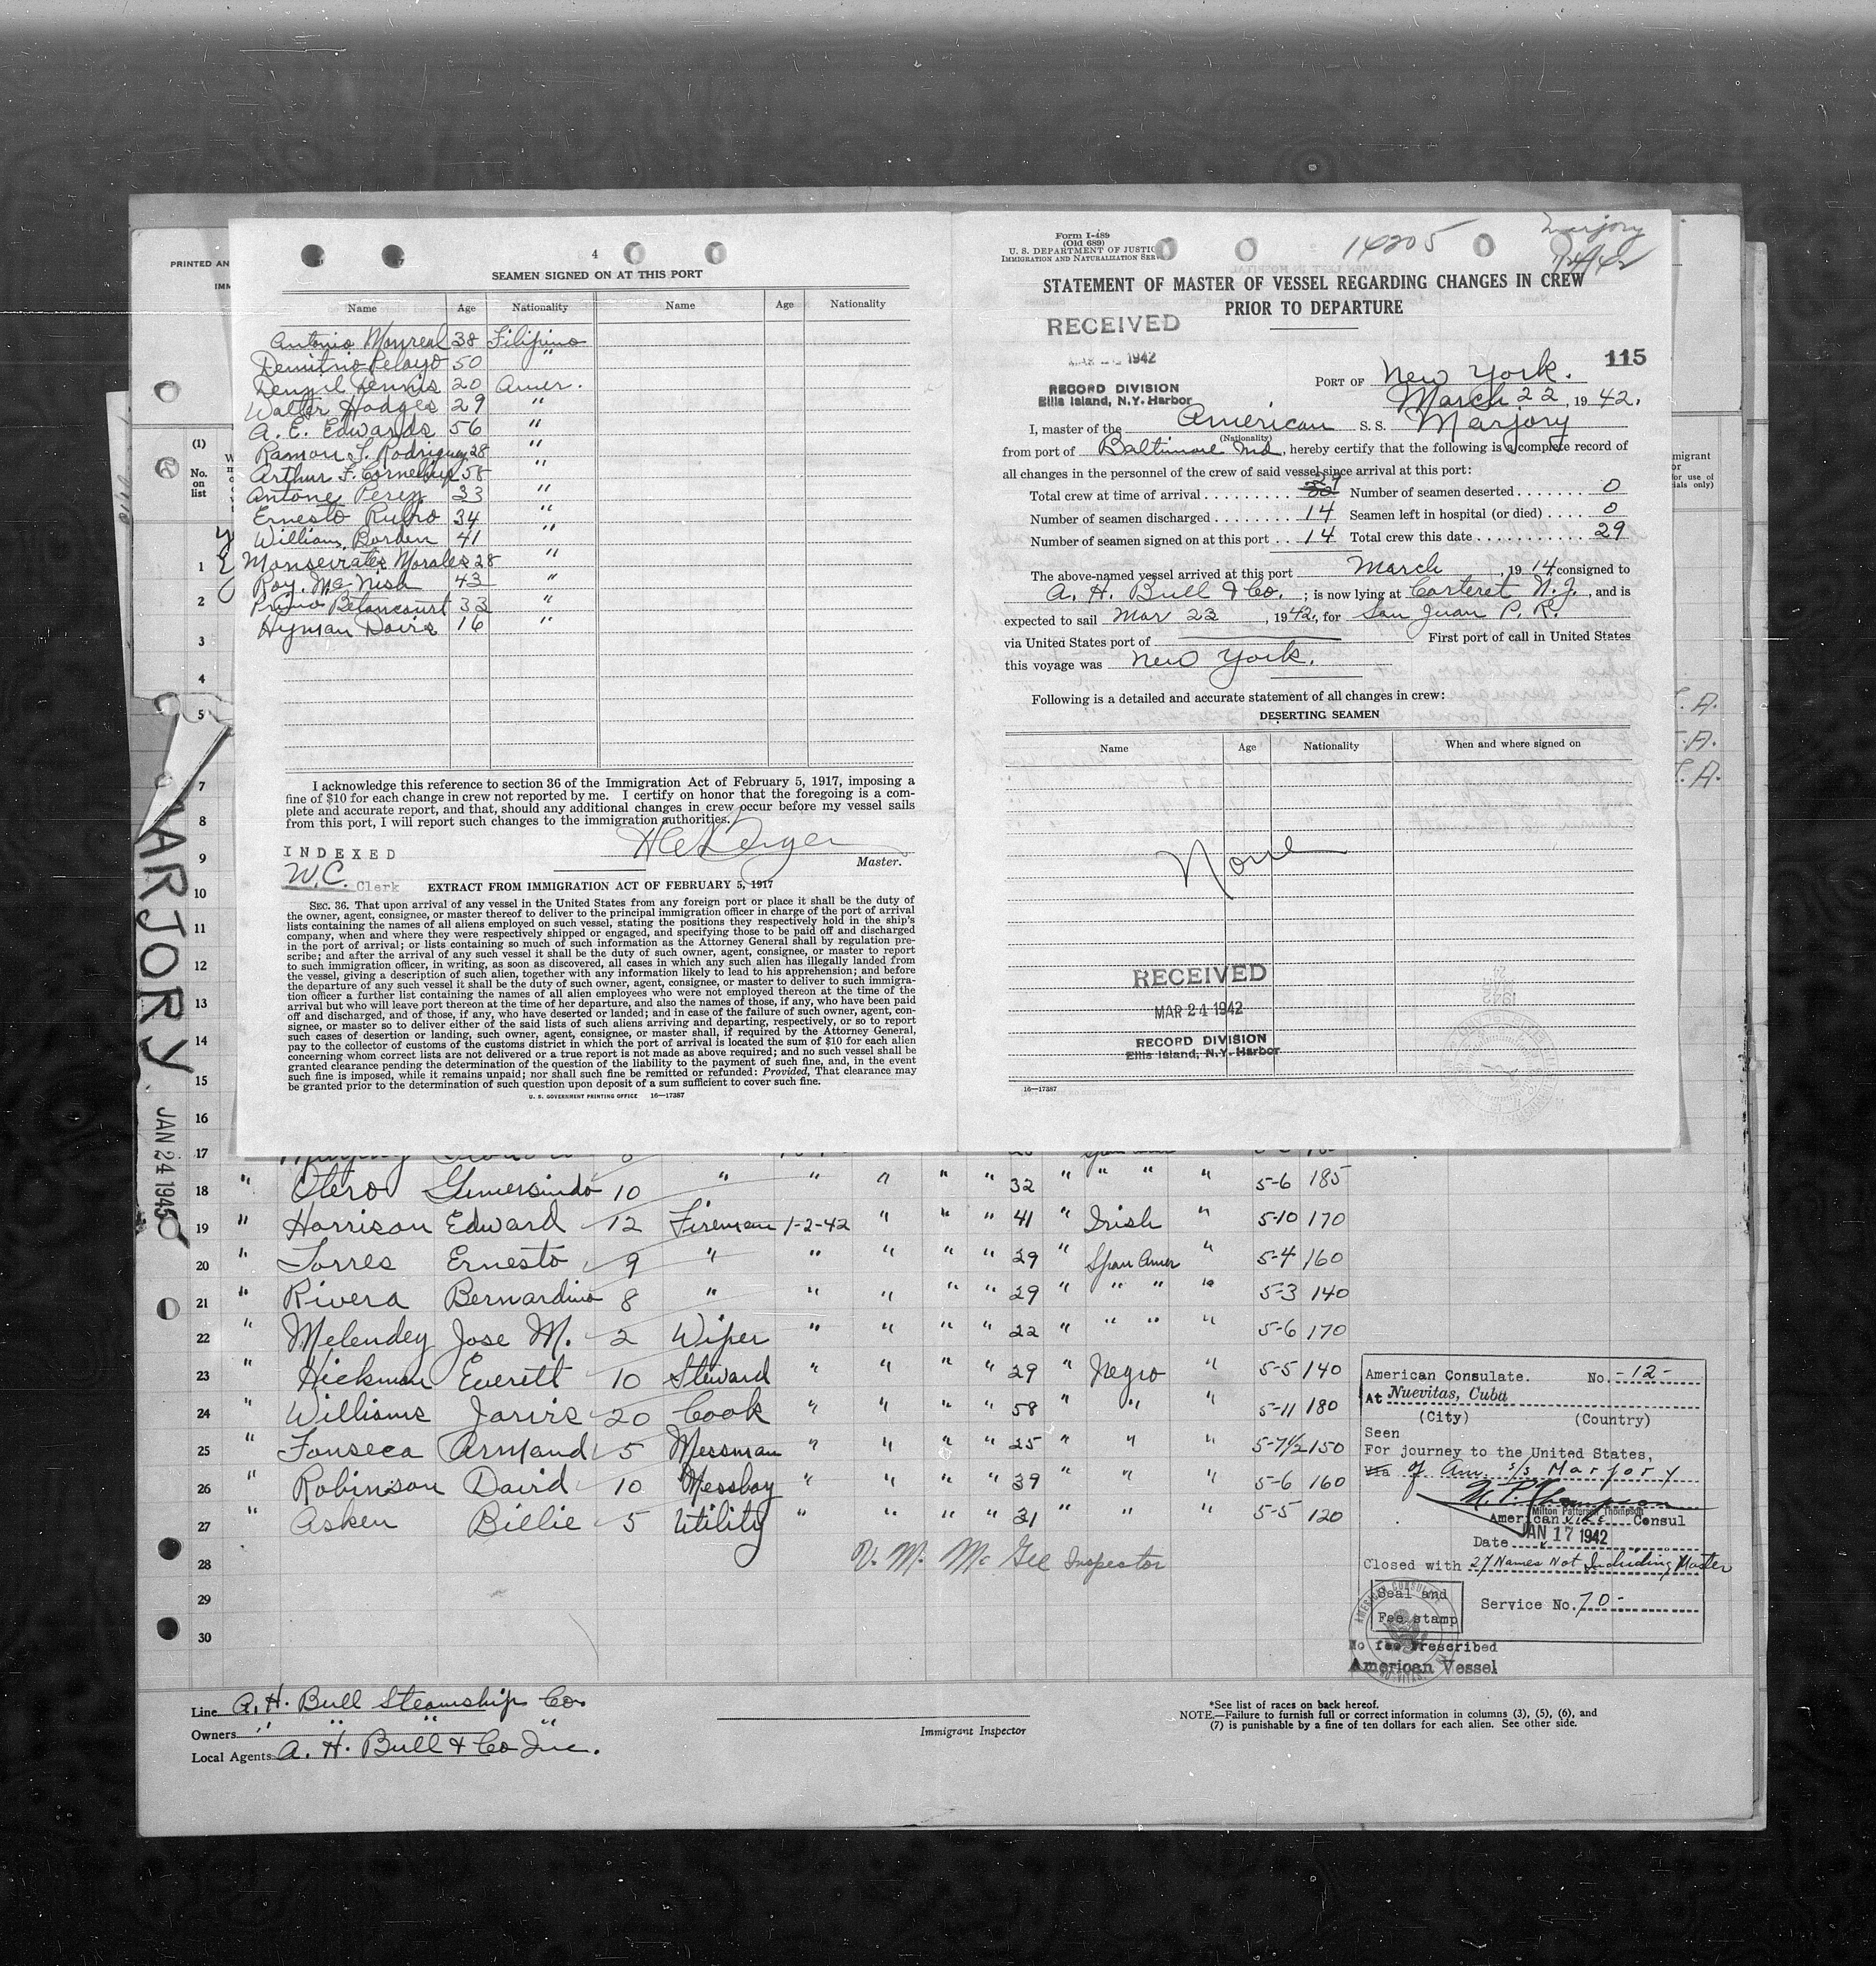 PRINTED AN
4
SEAMEN SIGNED ON AT THIS PORT
Name Age Nationality Name Age Nationality
Antonio Monreal 38 Filipino
Demitrio Pelayo 50 "
Denzil Dennis 20 Amer.
Walter Hodges 29 "
A. E. Edwards 56 "
Ramon S. Rodriguez 28 "
Arthur F. Cornelius 58 "
Antone Perez 33 "
Ernesto Rubio 34 "
William Borden 41 "
Monserrate Morales 28 "
Roy. Mc Nish 43 "
Primo Betancourt 33 "
Hyman Davis 16 "
I acknowledge this reference to section 36 of the Immigration Act of February 5, 1917, imposing a
fine of $10 for each change in crew not reported by me. I certify on honor that the foregoing is a com-
plete and accurate report, and that, should any additional changes in crew occur before my vessel sails
from this port, I will report such changes to the immigration authorities.
Master.
INDEXED
W.C. Clerk
EXTRACT FROM IMMIGRATION ACT OF FEBRUARY 5, 1917
SEC. 36. That upon arrival of any vessel in the United States from any foreign port or place it shall be the duty of
the owner, agent, consignee, or master thereof to deliver to the principal immigration officer in charge of the port of arrival
lists containing the names of all aliens employed on such vessel, stating the positions they respectively hold in the ship's
company, when and where they were respectively shipped or engaged, and specifying those to be paid off and discharged
in the port of arrival; or lists containing so much of such information as the Attorney General shall by regulation pre-
scribe; and after the arrival of any such vessel it shall be the duty of such owner, agent, consignee, or master to report
to such immigration officer, in writing, as soon as discovered, all cases in which any such alien has illegally landed from
the vessel, giving a description of such alien, together with any information likely to lead to his apprehension; and before
the departure of any such vessel it shall be the duty of such owner, agent, consignee, or master to deliver to such immigra-
tion officer a further list containing the names of all alien employees who were not employed thereon at the time of the
arrival but who will leave port thereon at the time of her departure, and also the names of those, if any, who have been paid
off and discharged, and of those, if any, who have deserted or landed; and in case of the failure of such owner, agent, con-
signee, or master so to deliver either of the said lists of such aliens arriving and departing, respectively, or so to report
such cases of desertion or landing, such owner, agent, consignee, or master shall, if required by the Attorney General,
pay to the collector of customs of the customs district in which the port of arrival is located the sum of $10 for each alien
concerning whom correct lists are not delivered or a true report is not made as above required; and no such vessel shall be
granted clearance pending the determination of the question of the liability to the payment of such fine, and, in the event
such fine is imposed, while it remains unpaid; nor shall such fine be remitted or refunded: Provided, That clearance may
be granted prior to the determination of such question upon deposit of a sum sufficient to cover such fine.
U. S. GOVERNMENT PRINTING OFFICE 16—17387
Form I-489
(Old 689)
U. S. DEPARTMENT OF JUSTIC
IMMIGRATION AND NATURALIZATION SERV
14205
Marjory
STATEMENT OF MASTER OF VESSEL REGARDING CHANGES IN CREW
PRIOR TO DEPARTURE
RECEIVED
1942
RECORD DIVISION
Ellis Island, N.Y. Harbor
115
PORT OF New York.
March 22, 1942.
I, master of the American S. S. Marjory
(Nationality)
from port of Baltimore Md., hereby certify that the following is a complete record of
all changes in the personnel of the crew of said vessel since arrival at this port:
Total crew at time of arrival 29 Number of seamen deserted 0
Number of seamen discharged 14 Seamen left in hospital (or died) 0
Number of seamen signed on at this port 14 Total crew this date 29
The above-named vessel arrived at this port March, 19 14, consigned to
A. H. Bull & Co. ; is now lying at Carteret N.J., and is
expected to sail Mar 23, 1942, for San Juan P. R.
via United States port of First port of call in United States
this voyage was New York.
Following is a detailed and accurate statement of all changes in crew:
DESERTING SEAMEN
Name Age Nationality When and where signed on
None
RECEIVED
MAR 24 1942
RECORD DIVISION
Ellis Island, N.Y. Harbor
16—17387
(1)
No.
on
list
1
2
3
4
5
7
8
9
10
11
12
13
14
15
16
17
MARJORY
JAN 24 1945
18 " Otero Gumersindo 10 " " " " " 32 " " " " 5-6 185
19 " Harrison Edward 12 Fireman 1-2-42 " " " 41 " Irish " 5-10 170
20 " Torres Ernesto 9 " " " " " 29 " Span Amer " 5-4 160
21 " Rivera Bernardino 8 " " " " " 29 " " " " 5-3 140
22 " Melendey Jose M. 2 Wiper " " " " 22 " " " " 5-6 170
23 " Hickman Everett 10 Steward " " " " 29 " Negro " 5-5 140
24 " Williams Jarvis 20 Cook " " " " 58 " " " 5-11 180
25 " Fonseca Armand 5 Messman " " " " 25 " " " 5-7½ 150
26 " Robinson David 10 Messboy " " " " 39 " " " 5-6 160
27 " Asken Billie 5 Utility " " " " 31 " " " 5-5 120
28 V. M. Mc Gee Inspector
29
30
American Consulate. No. -12-
At Nuevitas, Cuba
(City) (Country)
Seen
For journey to the United States,
Via of Am. s/s Marjory
Milton Patterson Thompson
American Vice Consul
Date JAN 17 1942
Closed with 27 Names Not Including Master
Seal and
Fee stamp
Service No. 70-
No fee Prescribed
American Vessel
Line A. H. Bull Steamship Co.
Owners " " " "
Local Agents A. H. Bull & Co Inc.
Immigrant Inspector
*See list of races on back hereof.
NOTE.—Failure to furnish full or correct information in columns (3), (5), (6), and
(7) is punishable by a fine of ten dollars for each alien. See other side.